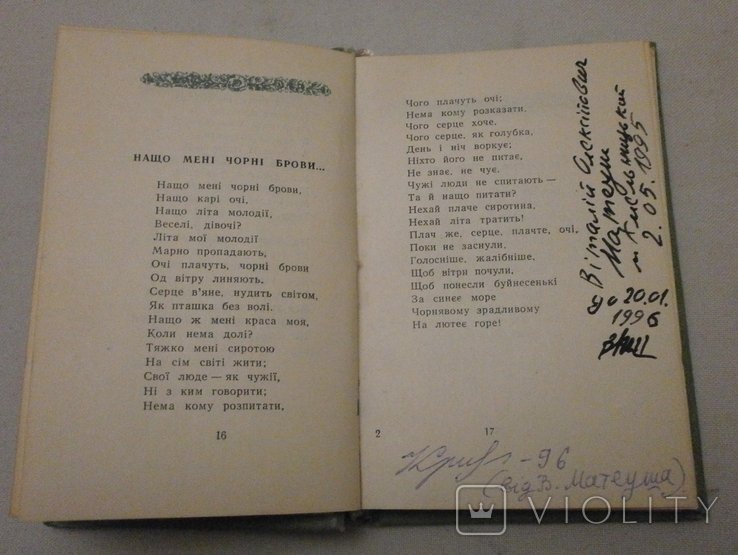 НАЩО МЕНІ ЧОРНІ БРОВИ...
Нащо мені чорні брови,
Нащо карі очі,
Нащо літа молодії,
Веселі, дівочі?
Літа мої молодії
Марно пропадають,
Очі плачуть, чорні брови
Од вітру линяють.
Серце в'яне, нудить світом,
Як пташка без волі.
Нащо ж мені краса моя,
Коли нема долі?
Тяжко мені сиротою
На сім світі жити;
Свої люде — як чужії,
Ні з ким говорити;
Нема кому розпитати,
16
Чого плачуть очі;
Нема кому розказати,
Чого серце хоче.
Чого серце, як голубка,
День і ніч воркує;
Ніхто його не питає,
Не знає, не чує.
Чужі люди не спитають —
Та й нащо питати?
Нехай плаче сиротина,
Нехай літа тратить!
Плач же, серце, плачте, очі,
Поки не заснули,
Голосніше, жалібніше,
Щоб вітри почули,
Щоб понесли буйнесенькі
За синєє море
Чорнявому зрадливому
На лютеє горе!
2
17
Віталій Олексійович
Матеуш
м. Хмельницький
2.05.1995
до 20.01.
1996
-96
(від В. Матеуша)
VIOLITY